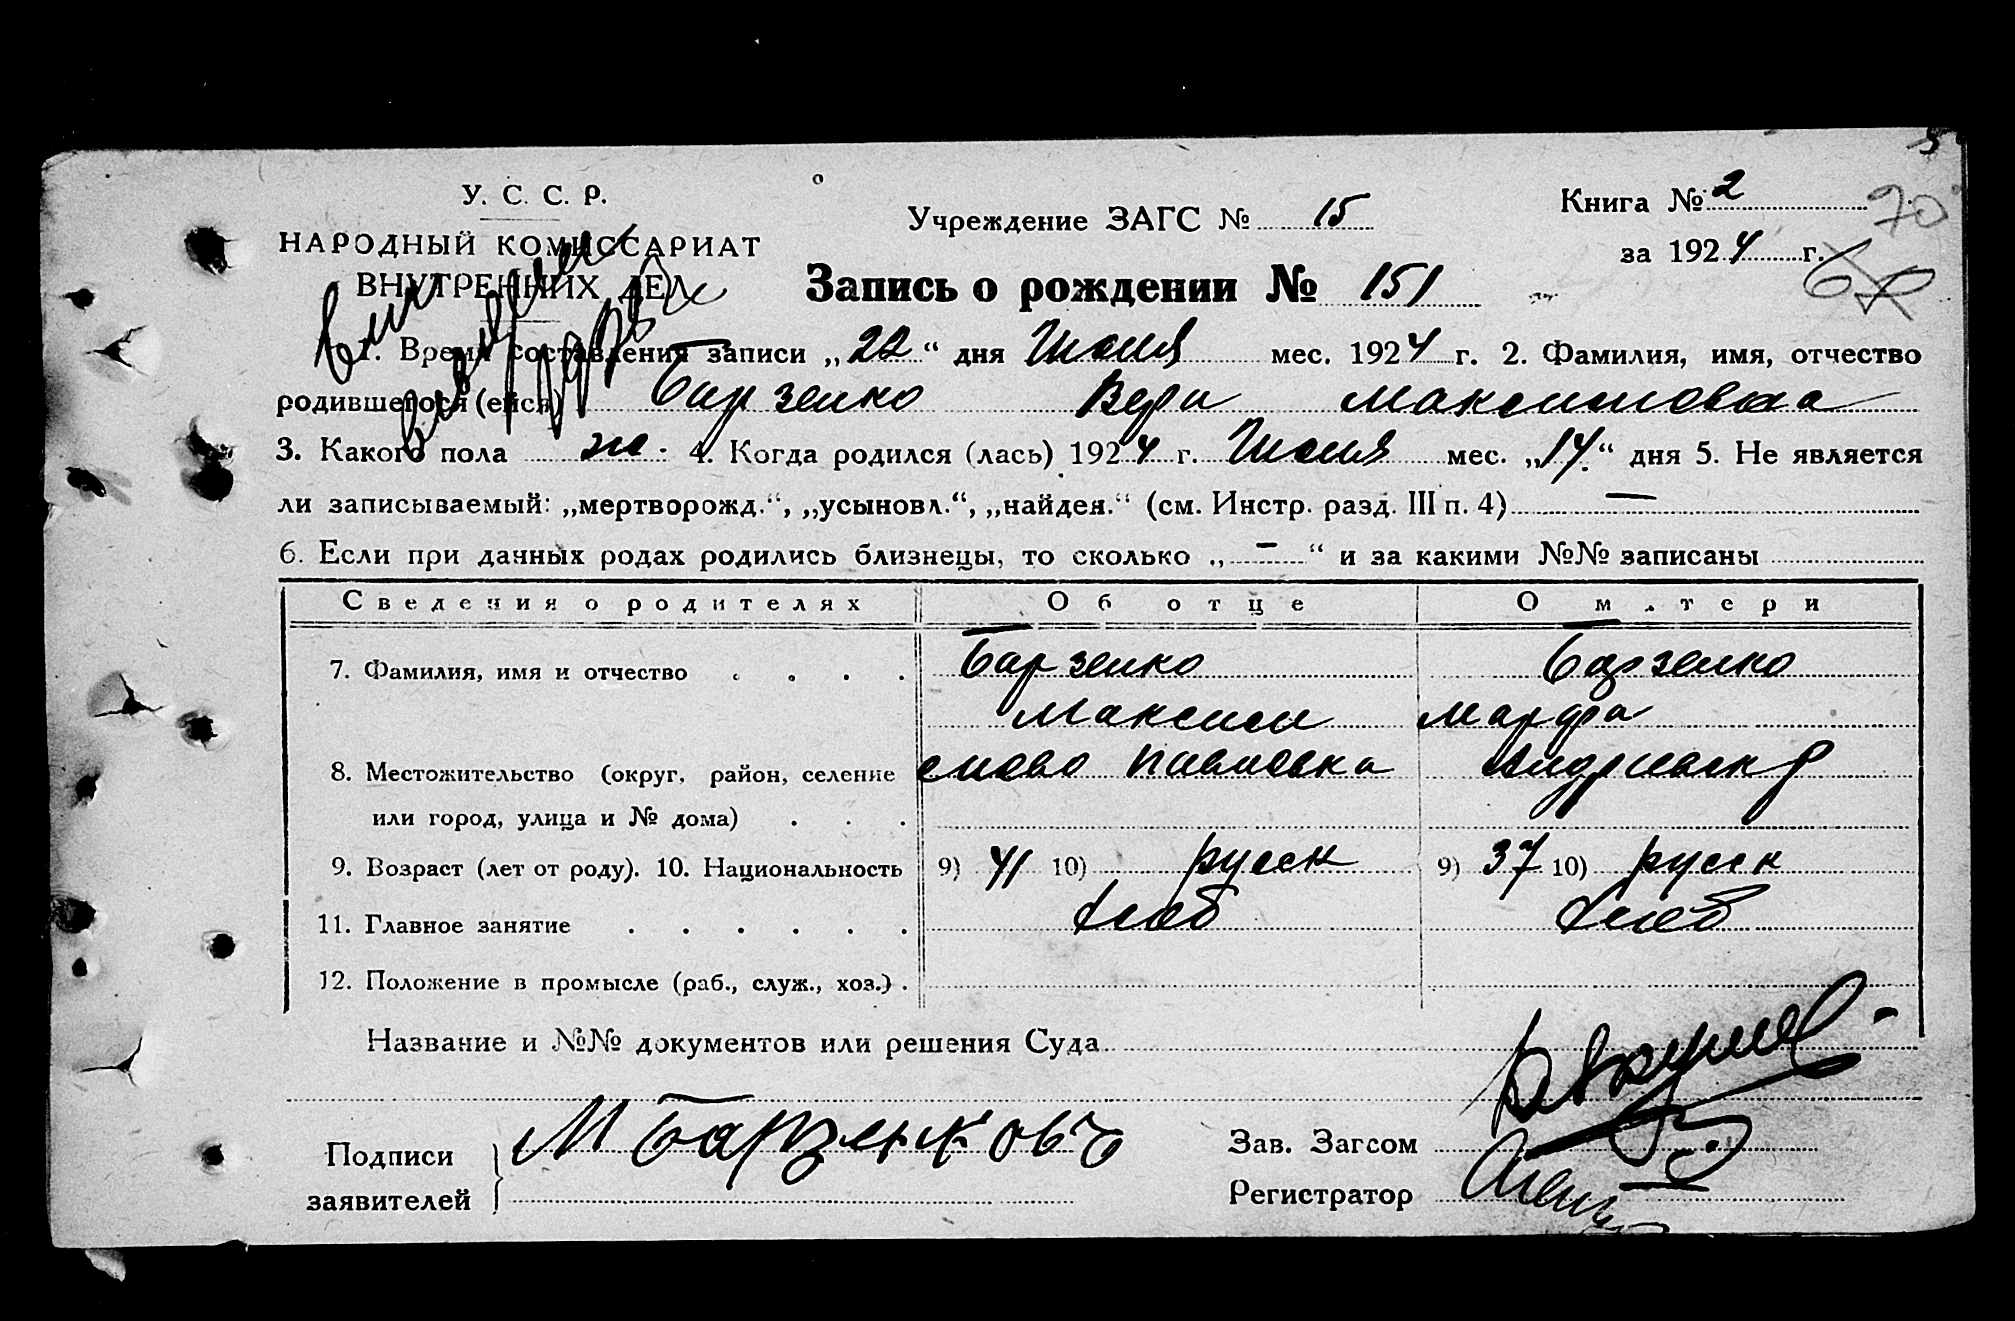 У. С. С. Р.
НАРОДНЫЙ КОМИССАРИАТ
ВНУТРЕННИХ ДЕЛ
Учреждение ЗАГС № 15
Книга № 2
70
за 1924 г.
Запись о рождении № 151
1. Время составления записи „22“ дня Июля мес. 1924 г. 2. Фамилия, имя, отчество
родившегося (ейся) Барзенко Вера Максимовна
3. Какого пола ж. 4. Когда родился (лась) 1924 г. Июля мес. „14“ дня 5. Не является
ли записываемый: „мертворожд.“, „усыновл.“, „найден.“ (см. Инстр. разд. III п. 4) —
6. Если при данных родах родились близнецы, то сколько „—“ и за какими №№ записаны
Сведения о родителях Об отце О матери
7. Фамилия, имя и отчество Барзенко Барзенко
Максим Марфа
8. Местожительство (округ, район, селение
или город, улица и № дома)
9. Возраст (лет от роду). 10. Национальность 9) 41 10) русск 9) 37 10) русск
11. Главное занятие хлеб хлеб
12. Положение в промысле (раб., служ., хоз.)
Название и №№ документов или решения Суда
Подписи
заявителей
М Барзенковъ
Зав. Загсом
Регистратор